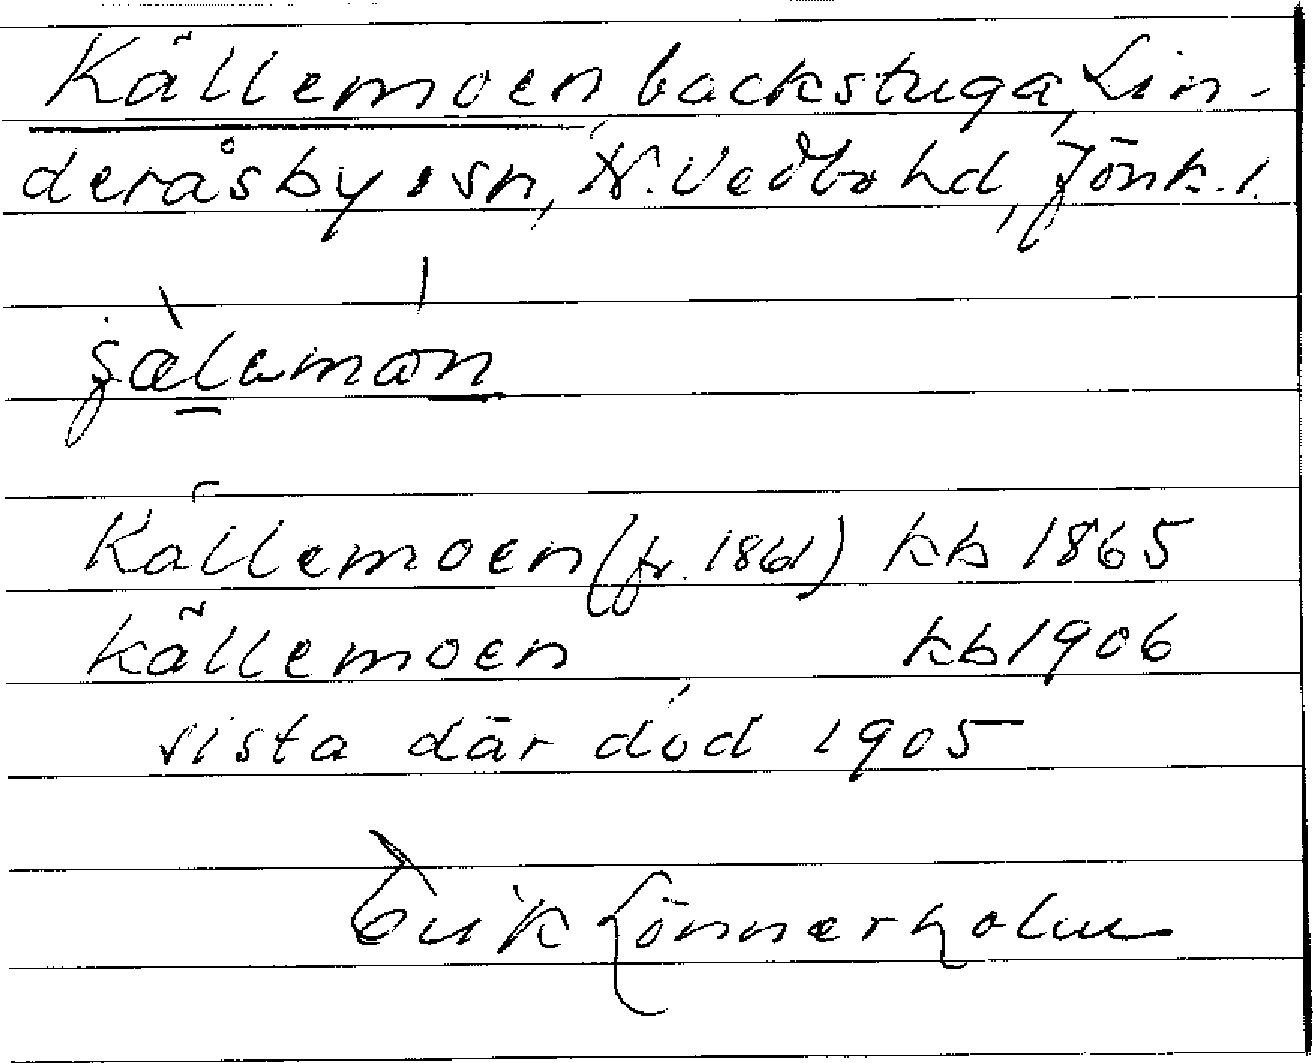 Källemoen backstuga, Lin-
deråsby, sn, N. Vedbo hd, Jönk. l.
Källemoen (fr. 1861) kb 1865
Källemoen kb 1906
sista där död 1905
Erik Lönnerholm